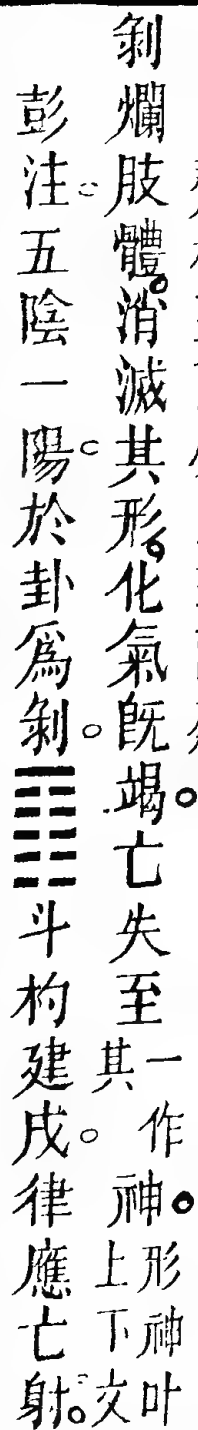 剝爛肢體。消滅其形。化氣旣竭。亡失至一作其神。形神叶上下文
彭注。五陰一陽。於卦爲剝。䷖斗杓建戌。律應亡射。